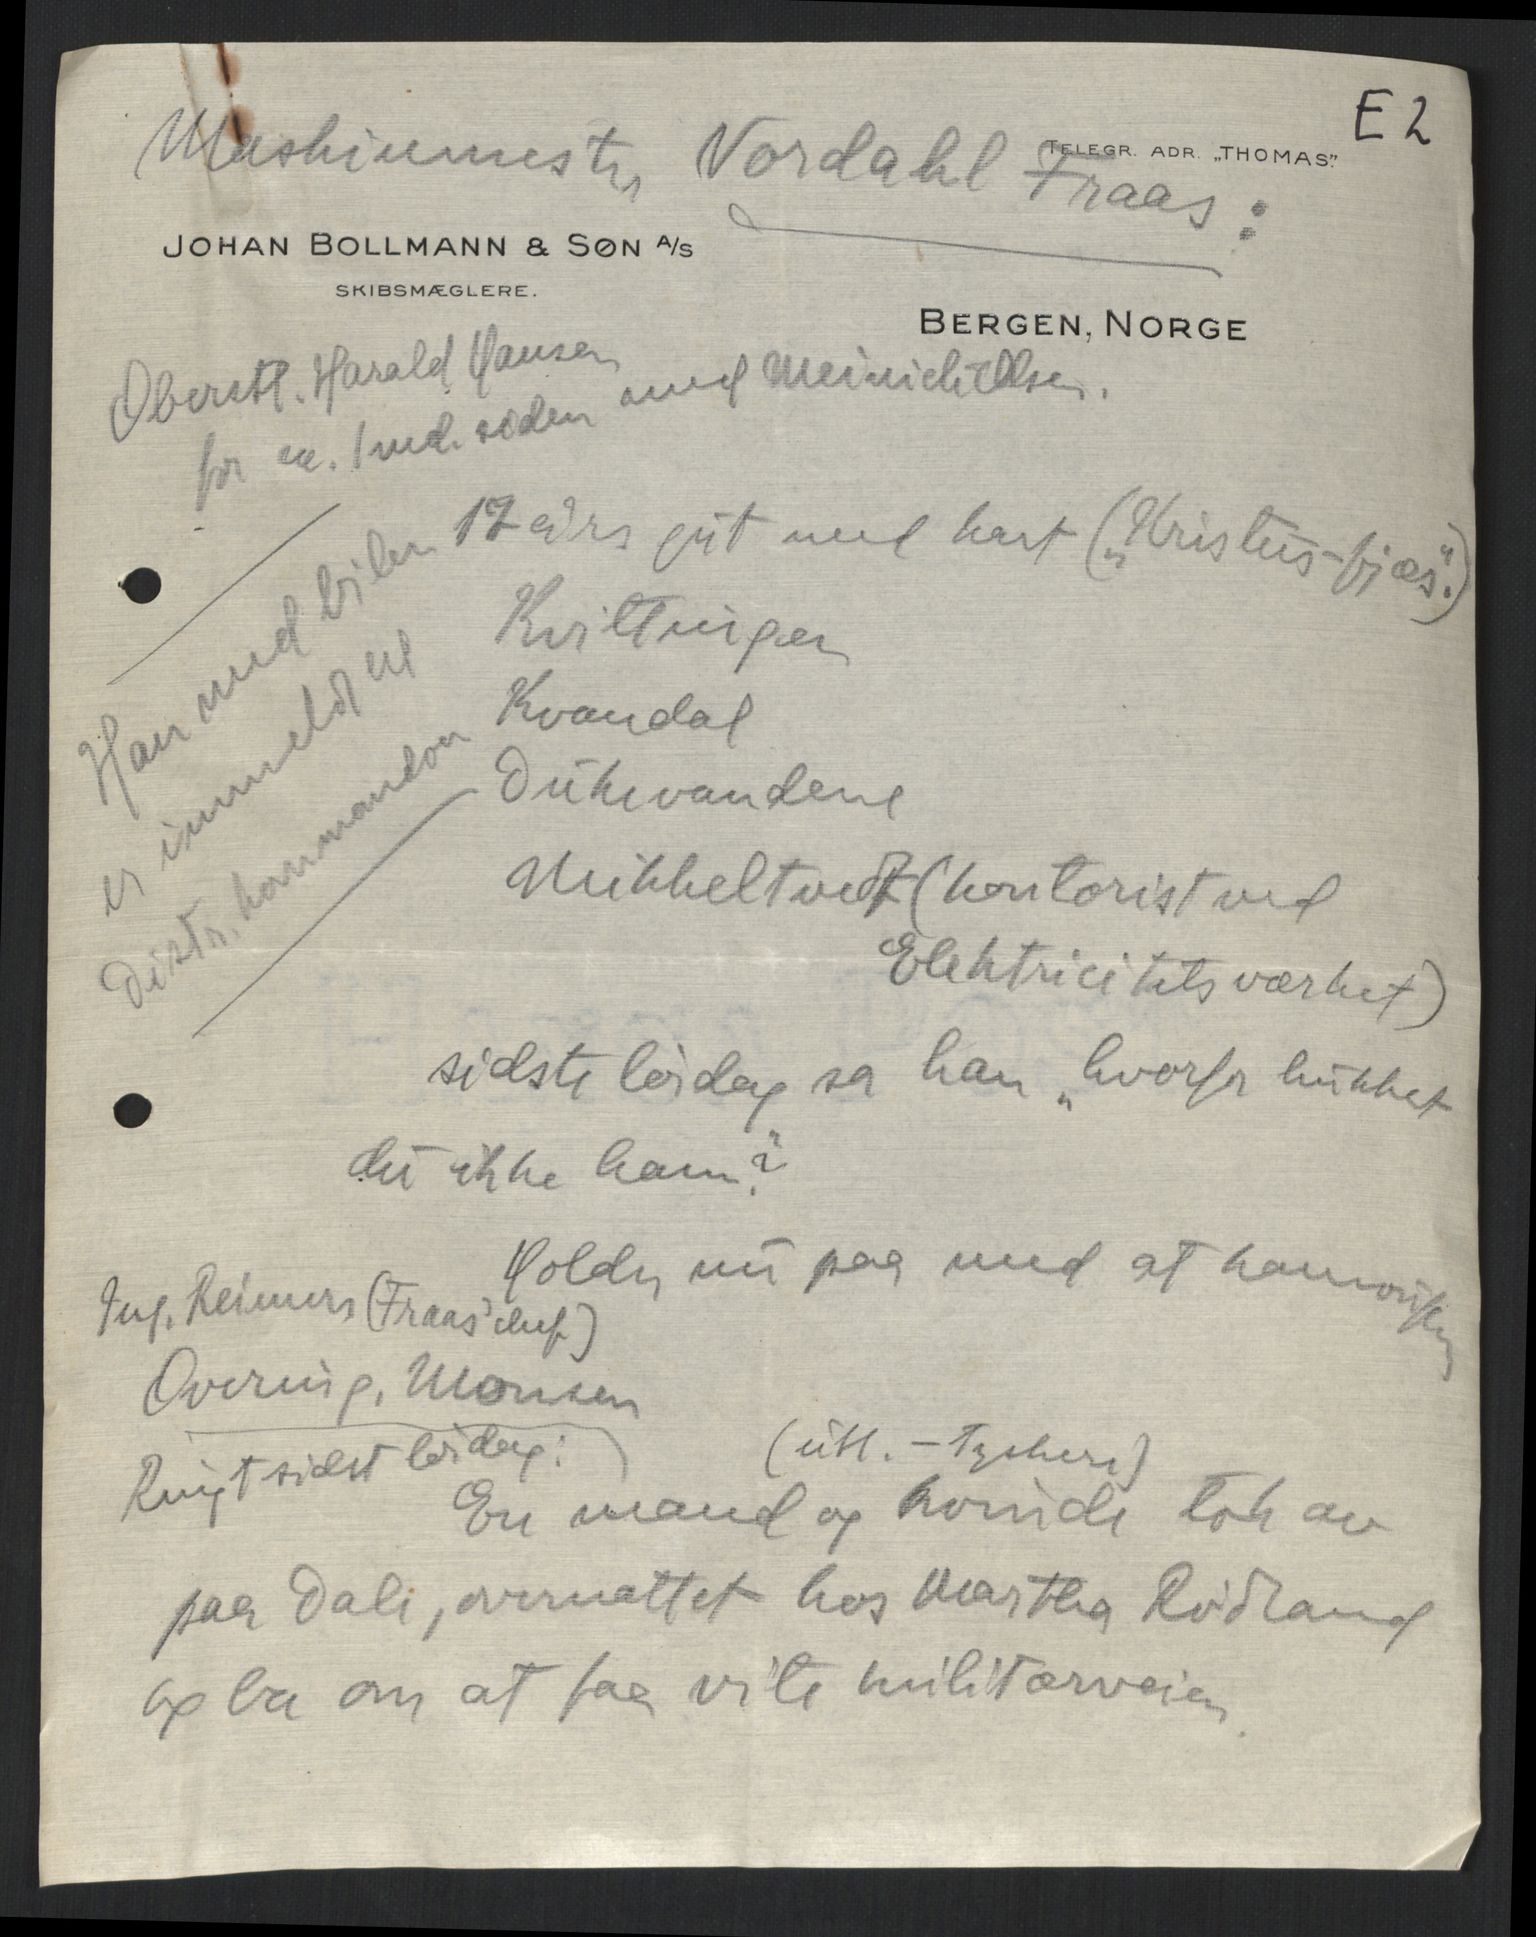 E2
Maskinmester Nordahl Fraas:
TELEGR. ADR. „THOMAS".
JOHAN BOLLMANN & SØN A/S
SKIBSMÆGLERE.
BERGEN, NORGE
Oberstl. Harald Hansen
for ca. 1 md. siden med Meinich Olsen.
Han med bilen
er innmeldt ved
Distr. kommandoen
17 års gut med kart („Kristus-fjæs".)
Kvittingen
Kvandal
Dukevandene
Mikkeltvedt (kontorist ved
Elektricitetsværket)
sidste lørdag sa han „hvorfor hukket
du ikke ham?"
Holder nu paa med at kamouflere
Ing. Reimers (Fraas' chef)
Overing. Monsen
Ringt sidst lørdag:
(utl. – tyskere)
En mand og kvinde tok av
paa Dale, overnattet hos Martha Rødland
og ba om at faa vite militærveien.